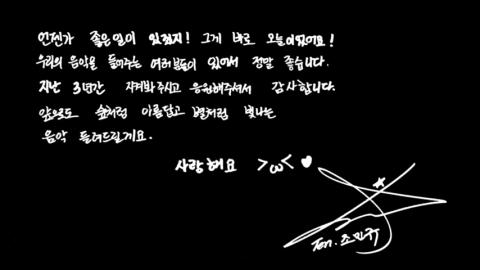 언젠가 좋은일이 있겠지! 그게 바로 오늘이었어요!
우리의 음악을 들어주는 여러분들이 있어서 정말 좋습니다.
지난 3년간 지켜봐주시고 응원해주셔서 감사합니다.
앞으로도 숲처럼 아름답고 별처럼 빛나는
음악 들려드릴게요.
사랑해요 >ω< ♥
조민규